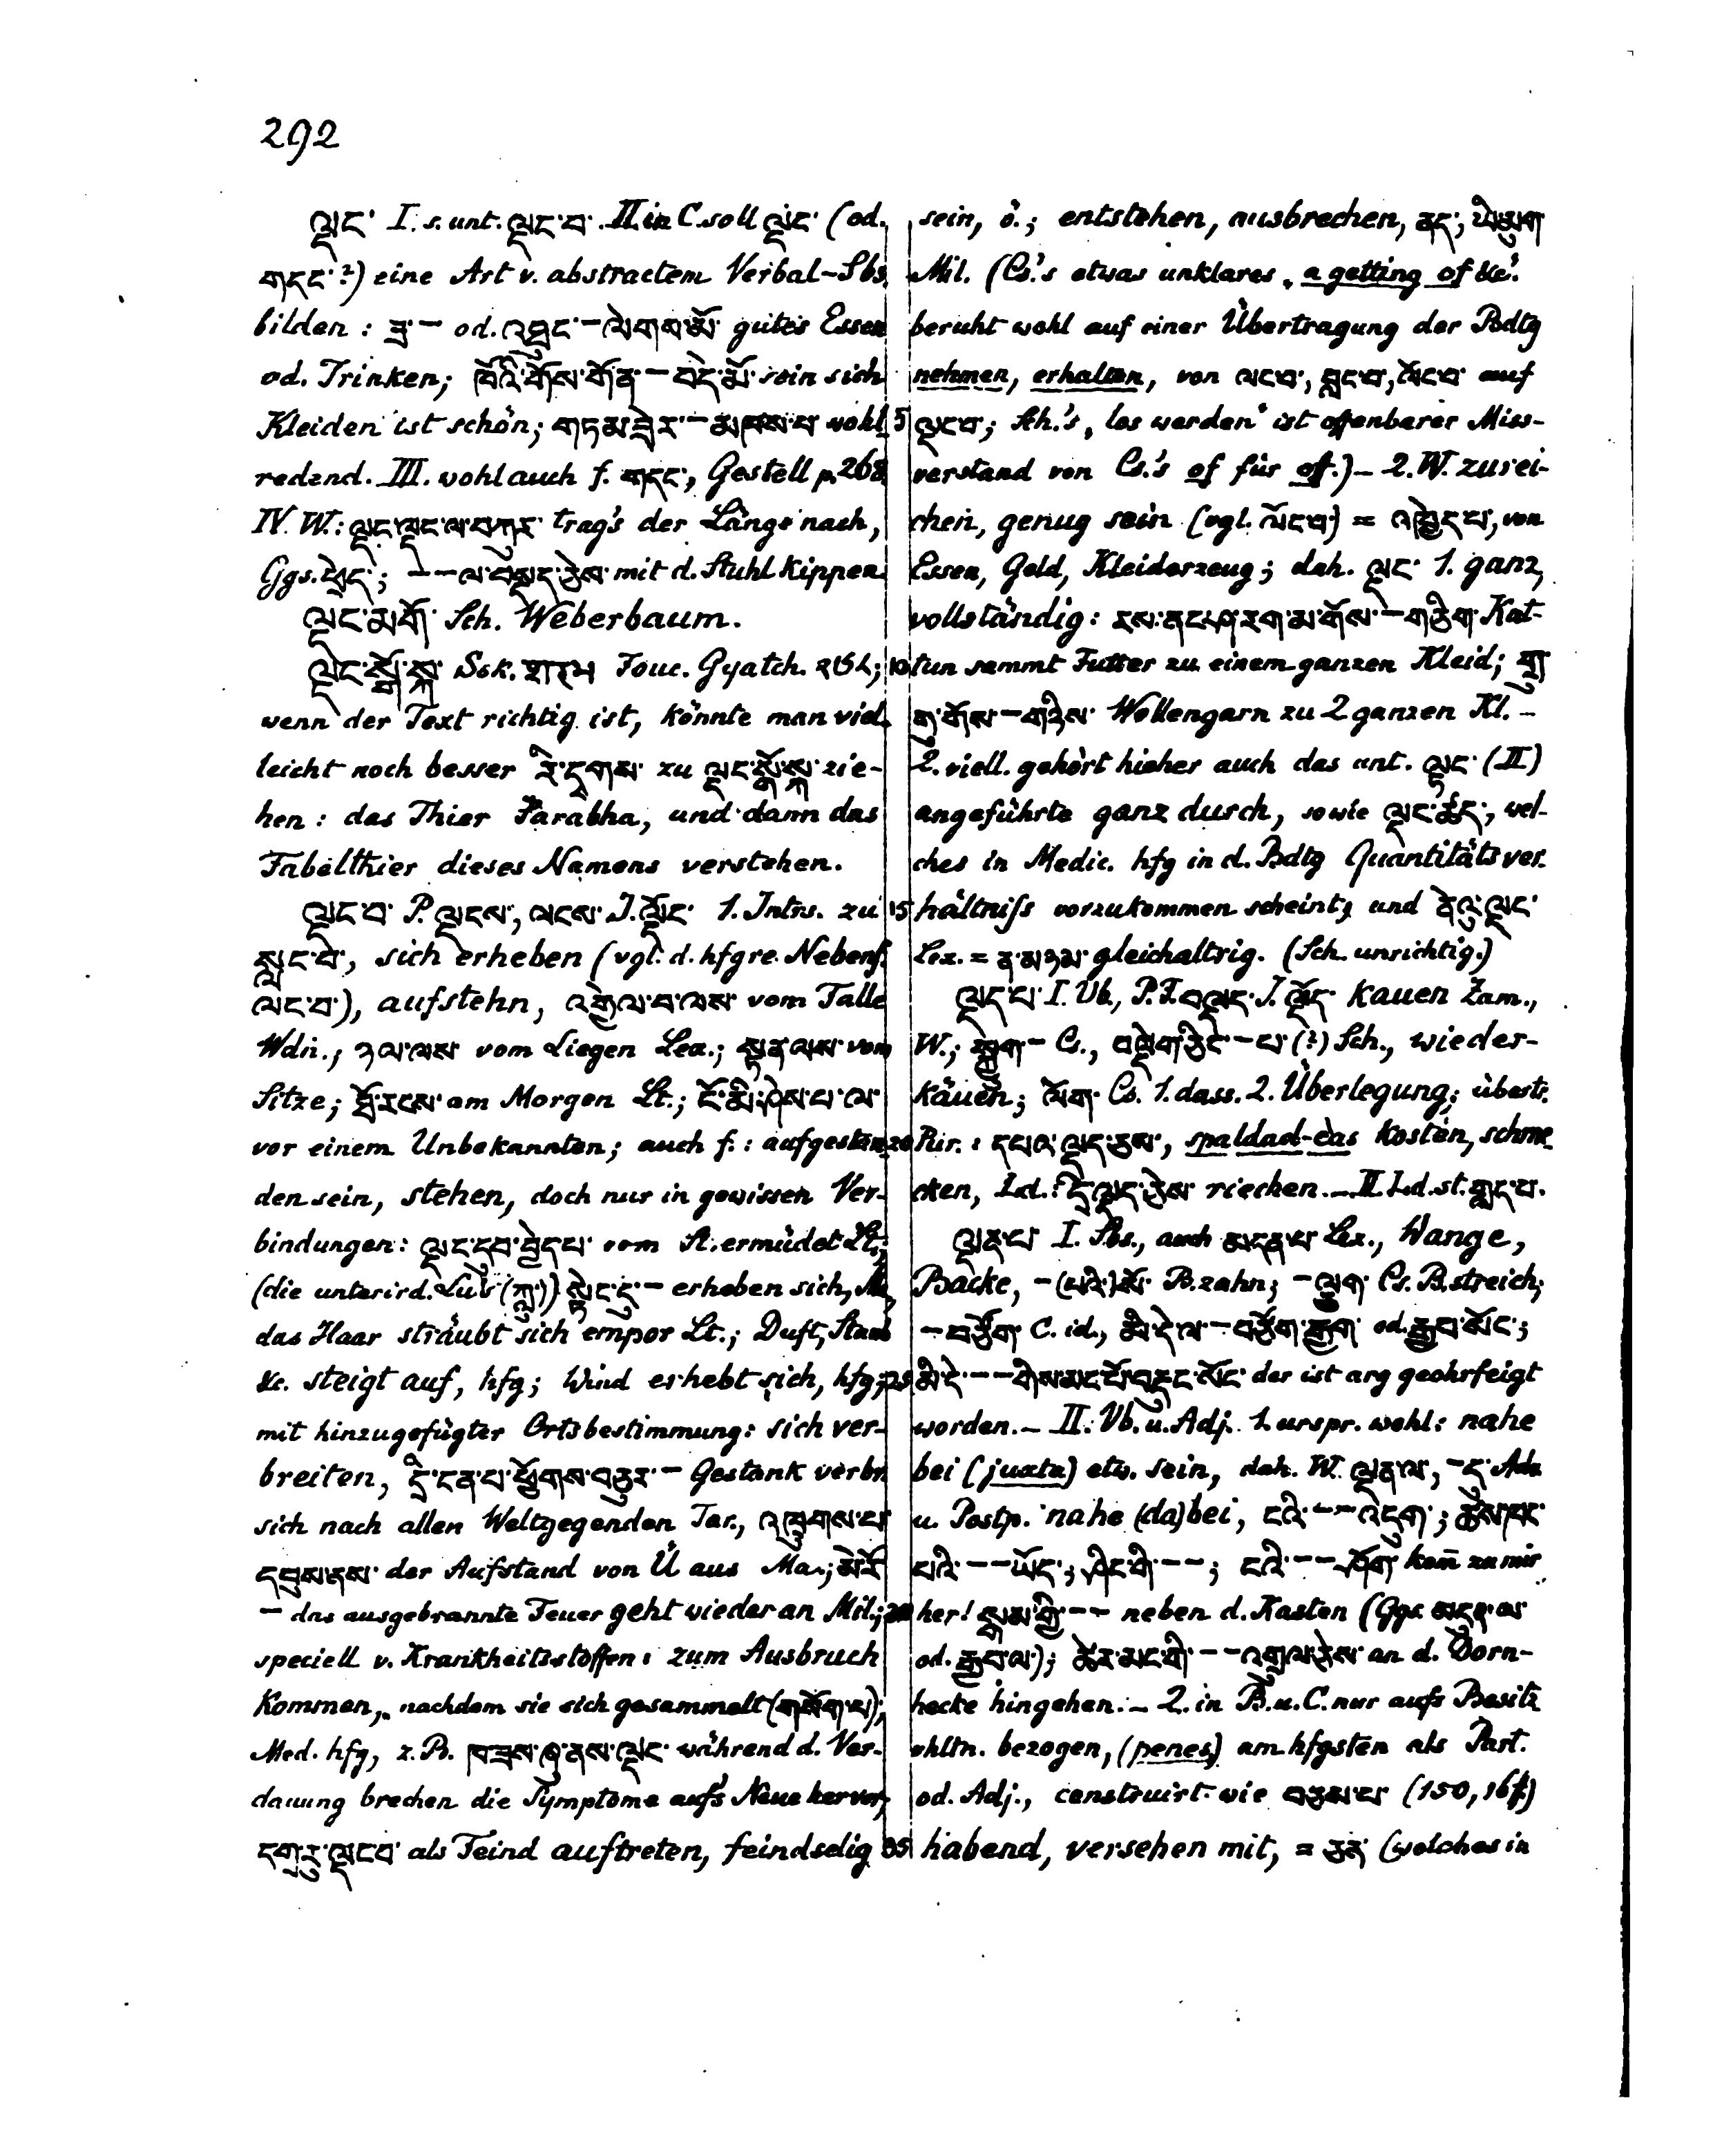 292
ལྡང་ I. s. unt. ལྡང་བ་. II. in C. soll ལྡང་ (od.
གདང་?) eine Art v. abstractem Verbal-Sbs.
bilden: ཟ་ – od. འཐུང་ – ལེགས་མོ་ gutes Essen
od. Trinken; ཁོའི་གོས་གོན་ – བདེ་མོ་ sein sich
Kleiden ist schön; གཏམ་ཟེར་ – མཁས་པ་ wohl-
redend. III. wohl auch f. གདང་, Gestell p. 268.
IV. W.: ལྡང་ལྡང་ལ་བཀུར་ trag's der Länge nach,
Ggs. ; – – ལ་ ཅེས་ mit d. Stuhl kippen.
ལྡང་མགོ་ Sch. Weberbaum.
ལྡང་སྒོ་སྐ་ Ssk. शरभ Fouc. Gyatch.
wenn der Text richtig ist, könnte man viel-
leicht noch besser རི་དྭགས་ zu ལྡང་སྒོ་སྐ་ zie-
hen: das Thier Farabha, und dann das
Fabelthier dieses Namens verstehen.
ལྡང་བ་ P. ལྡངས་, ལངས་ J. ལྡོང་ 1. Intrs. zu
སླང་བ་, sich erheben (vgl. d. hfgre. Nebenf.
ལང་བ་), aufstehn, འགྱེལ་བ་ལས་ vom Falle
Wdn.; ཉལ་ལས་ vom Liegen Lex.; སྟན་ལས་ vom
Sitze; ཐོ་རངས་ am Morgen Lt.; ངོ་མི་ཤེས་པ་ལ་
vor einem Unbekannten; auch f.: aufgestan-
den sein, stehen, doch nur in gewissen Ver-
bindungen: ལྡང་དུབ་བྱེད་པ་ vom St. ermüdet Lt.;
(die unterird. Lu's (ཀླུ་)) སྟེང་དུ་ – erheben sich, Ma.,
das Haar sträubt sich empor Lt.; Duft, Staub
&c. steigt auf, hfg; Wind erhebt sich, hfg;
mit hinzugefügter Ortsbestimmung: sich ver-
breiten, དྲི་ངན་པ་ཕྱོགས་བཅུར་ – Gestank verbr.
sich nach allen Weltgegenden Tar., འཁྲུགས་པ་
དབུས་ནས་ der Aufstand von Ü aus Ma.; མེ་རོ་
– das ausgebrannte Feuer geht wieder an Mil.;
speciell v. Krankheitsstoffen: zum Ausbruch
kommen, nachdem sie sich gesammelt (གསོག་པ་),
Med. hfg, z. B. ཁ་ཟས་ཞུ་ནས་ལྡང་ während d. Ver-
dauung brechen die Symptome aufs Neue hervor;
དགྲ་རུ་ལྡང་བ་ als Feind auftreten, feindselig
sein, ö.; entstehen, ausbrechen, ནད་,
Mil. (Cs.'s etwas unklares „a getting of &c.“
beruht wohl auf einer Übertragung der Bdtg
nehmen, erhalten, von ལང་བ་, བླང་བ་, ལོང་བ་ auf
ལྡང་བ་; Sch.'s „los werden“ ist offenbarer Miss-
verstand von Cs.'s of für off.) – 2. W. zurei-
chen, genug sein (vgl. ལོང་བ་) = འཁྱེད་པ་, von
Essen, Geld, Kleiderzeug; dah. ལྡང་ 1. ganz,
vollständig: རས་ནང་ཤ་རག་མ་གོས་ – གཅིག་ Kat-
tun sammt Futter zu einem ganzen Kleid;
གོས་ – གཉིས་ Wollengarn zu 2 ganzen Kl. –
2. viell. gehört hieher auch das unt. ལྡང་ (II)
angeführte ganz durch, sowie ལྡང་ཚད་, wel-
ches in Medic. hfg in d. Bdtg Quantitätsver-
hältniss vorzukommen scheint, und ན་ལྡང་
Lex. = ན་མཉམ་ gleichaltrig. (Sch. unrichtig.)
ལྡད་པ་ I. Vb., P. F. བལྡད་ J. ལྡོད་ kauen Zam.,
W.; སྐྱུག་ – Cs., – པ་ (?) Sch., wieder-
käuen; ལྡོག་ Cs. 1. dass. 2. Überlegung; übertr.
Pur.: དཔལ་ལྡད་ཅས་, spaldad-ćas kosten, schme-
cken, Ld.: དྲི་ལྡད་ཅེས་ riechen. – II. Ld. st. གླད་པ་.
ལྡན་པ་ I. Sbs., auch མདན་པ་ Lex., Wange,
Backe, – (པའི་)སོ་ B.zahn; – ལྕག་ Cs. B.streich;
– C. id., མི་དེ་ལ་ – རྒྱག་ od. རྒྱབ་སོང་;
མི་དེ་ – – གིས་མང་པོ་བརྡུང་སོང་ der ist arg geohrfeigt
worden. – II. Vb. u. Adj. 1. urspr. wohl: nahe
bei (juxta) etw. sein, dah. W. ལྡན་ལ་, – དུ་ Adv.
u. Postp. nahe (da)bei, ངའི་ – – འདུག་; ཆོས་ཁང་
པའི་ – – ཡོད་; ཤིང་གི་ – –; ངའི་ – – ཤོག་ kom̄ zu mir
her! སྒམ་གྱི་ – – neben d. Kasten (Ggs. མདུན་ལ་
od. རྒྱབ་ལ་); ཚེར་མང་གི་ – – འགྲུལ་ཅེས་ an d. Dorn-
hecke hingehen. – 2. in B. u. C. nur aufs Besitz-
vhltn. bezogen, (penes) am hfgsten als Part.
od. Adj., construirt wie བཅས་པ་ (150, 16f.)
habend, versehen mit, = ཅན་ (welches in